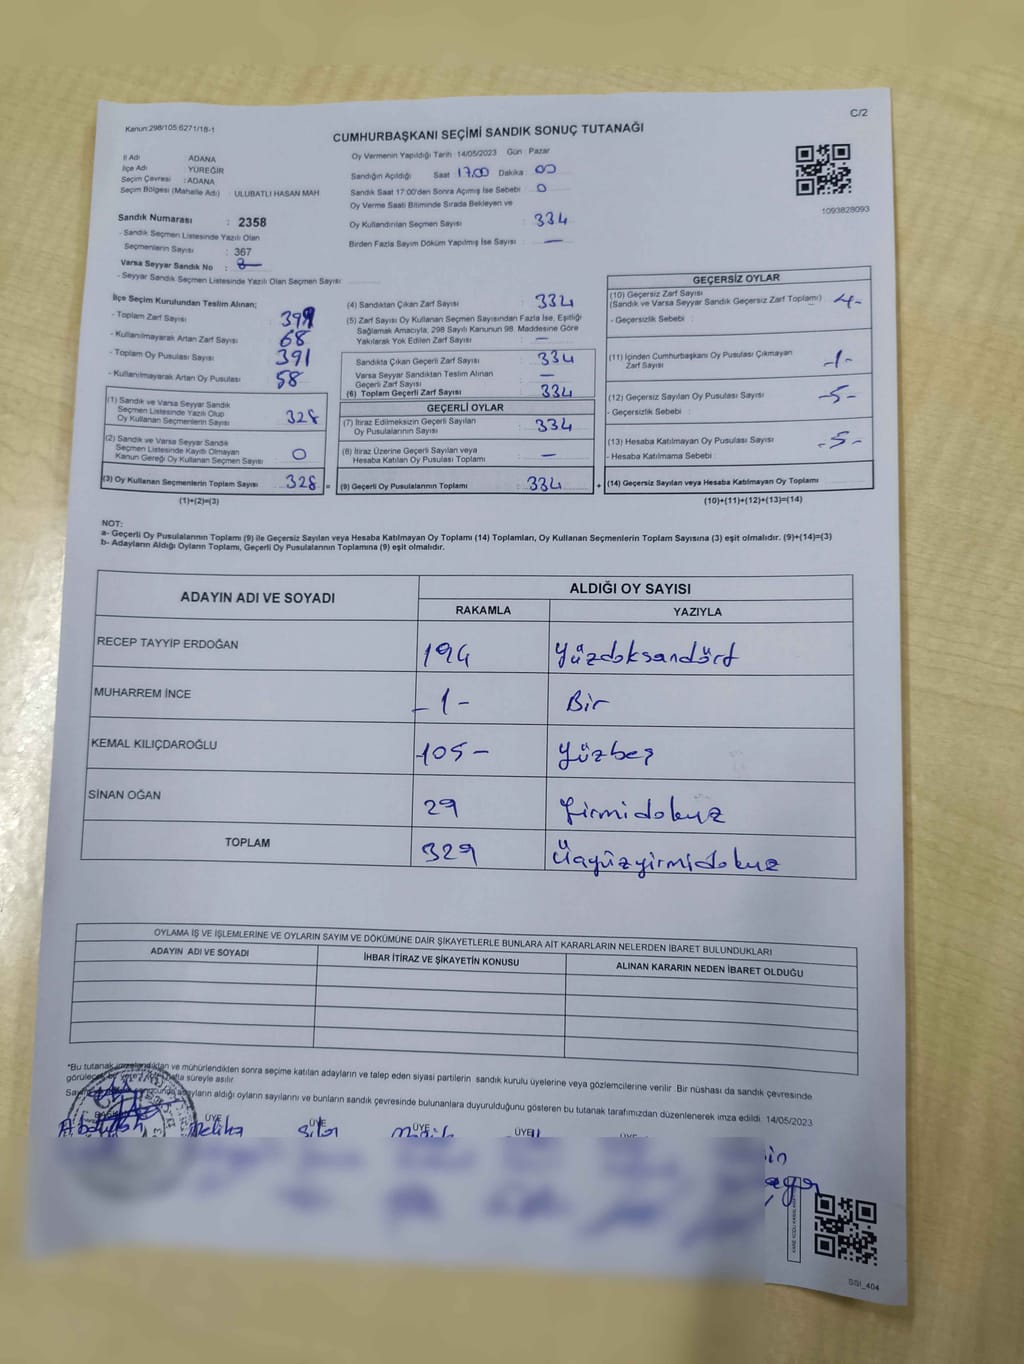 Kanun:298/105;6271/18-1
C/2
CUMHURBAŞKANI SEÇİMİ SANDIK SONUÇ TUTANAĞI
İl Adı ADANA
İlçe Adı YÜREĞİR
Seçim Çevresi :ADANA
Seçim Bölgesi (Mahalle Adı) : ULUBATLI HASAN MAH
Sandık Numarası : 2358
- Sandık Seçmen Listesinde Yazılı Olan
Seçmenlerin Sayısı : 367
Varsa Seyyar Sandık No :
- Seyyar Sandık Seçmen Listesinde Yazılı Olan Seçmen Sayısı
Oy Vermenin Yapıldığı Tarih :14/05/2023 Gün : Pazar
Sandığın Açıldığı Saat 17.00 Dakika 00
Sandık Saat 17:00'den Sonra Açımış İse Sebebi : 0
Oy Verme Saati Bitiminde Sırada Bekleyen ve
Oy Kullandırılan Seçmen Sayısı : 334
Birden Fazla Sayım Döküm Yapılmış İse Sayısı : —
1093828093
İlçe Seçim Kurulundan Teslim Alınan;
- Toplam Zarf Sayısı
- Kullanılmayarak Artan Zarf Sayısı : 68
- Toplam Oy Pusulası Sayısı : 391
- Kullanılmayarak Artan Oy Pusulası : 58
(1) Sandık ve Varsa Seyyar Sandık
Seçmen Listesinde Yazılı Olup
Oy Kullanan Seçmenlerin Sayısı : 328
(2) Sandık ve Varsa Seyyar Sandık
Seçmen Listesinde Kayıtlı Olmayan
Kanun Gereği Oy Kullanan Seçmen Sayısı : 0
(3) Oy Kullanan Seçmenlerin Toplam Sayısı : 328 =
(1)+(2)=(3)
(4) Sandıktan Çıkan Zarf Sayısı : 334
(5) Zarf Sayısı Oy Kullanan Seçmen Sayısından Fazla İse, Eşitliği
Sağlamak Amacıyla, 298 Sayılı Kanunun 98. Maddesine Göre
Yakılarak Yok Edilen Zarf Sayısı : —
Sandıkta Çıkan Geçerli Zarf Sayısı : 334
Varsa Seyyar Sandıktan Teslim Alınan
Geçerli Zarf Sayısı : —
(6) Toplam Geçerli Zarf Sayısı : 334
GEÇERLİ OYLAR
(7) İtiraz Edilmeksizin Geçerli Sayılan
Oy Pusulalarının Sayısı : 334
(8) İtiraz Üzerine Geçerli Sayılan veya
Hesaba Katılan Oy Pusulası Toplamı : —
(9) Geçerli Oy Pusulalarının Toplamı : 334 +
GEÇERSİZ OYLAR
(10) Geçersiz Zarf Sayısı
(Sandık ve Varsa Seyyar Sandık Geçersiz Zarf Toplamı) : 4-
- Geçersizlik Sebebi :
(11) İçinden Cumhurbaşkanı Oy Pusulası Çıkmayan
Zarf Sayısı : -1-
(12) Geçersiz Sayılan Oy Pusulası Sayısı : -5-
- Geçersizlik Sebebi :
(13) Hesaba Katılmayan Oy Pusulası Sayısı : -5-
- Hesaba Katılmama Sebebi :
(14) Geçersiz Sayılan veya Hesaba Katılmayan Oy Toplamı :
(10)+(11)+(12)+(13)=(14)
NOT:
a- Geçerli Oy Pusulalarının Toplamı (9) ile Geçersiz Sayılan veya Hesaba Katılmayan Oy Toplamı (14) Toplamları, Oy Kullanan Seçmenlerin Toplam Sayısına (3) eşit olmalıdır. (9)+(14)=(3)
b- Adayların Aldığı Oyların Toplamı, Geçerli Oy Pusulalarının Toplamına (9) eşit olmalıdır.
ADAYIN ADI VE SOYADI ALDIĞI OY SAYISI
RAKAMLA YAZIYLA
RECEP TAYYİP ERDOĞAN 194 Yüzdoksandört
MUHARREM İNCE -1- Bir
KEMAL KILIÇDAROĞLU -105- Yüzbeş
SİNAN OĞAN 29 Yirmidokuz
TOPLAM 329 Üçyüzyirmidokuz
OYLAMA İŞ VE İŞLEMLERİNE VE OYLARIN SAYIM VE DÖKÜMÜNE DAİR ŞİKAYETLERLE BUNLARA AİT KARARLARIN NELERDEN İBARET BULUNDUKLARI
ADAYIN ADI VE SOYADI İHBAR İTİRAZ VE ŞİKAYETİN KONUSU ALINAN KARARIN NEDEN İBARET OLDUĞU
*Bu tutanak imzalandıktan ve mühürlendikten sonra seçime katılan adayların ve talep eden siyasi partilerin sandık kurulu üyelerine veya gözlemcilerine verilir. Bir nüshası da sandık çevresinde
süreyle asılır.
adayların aldığı oyların sayılarını ve bunların sandık çevresinde bulunanlara duyurulduğunu gösteren bu tutanak tarafımızdan düzenlenerek imza edildi. 14/05/2023
ÜYE ÜYE ÜYE ÜYE ÜYE
Abdullah Meliha
SSI_404